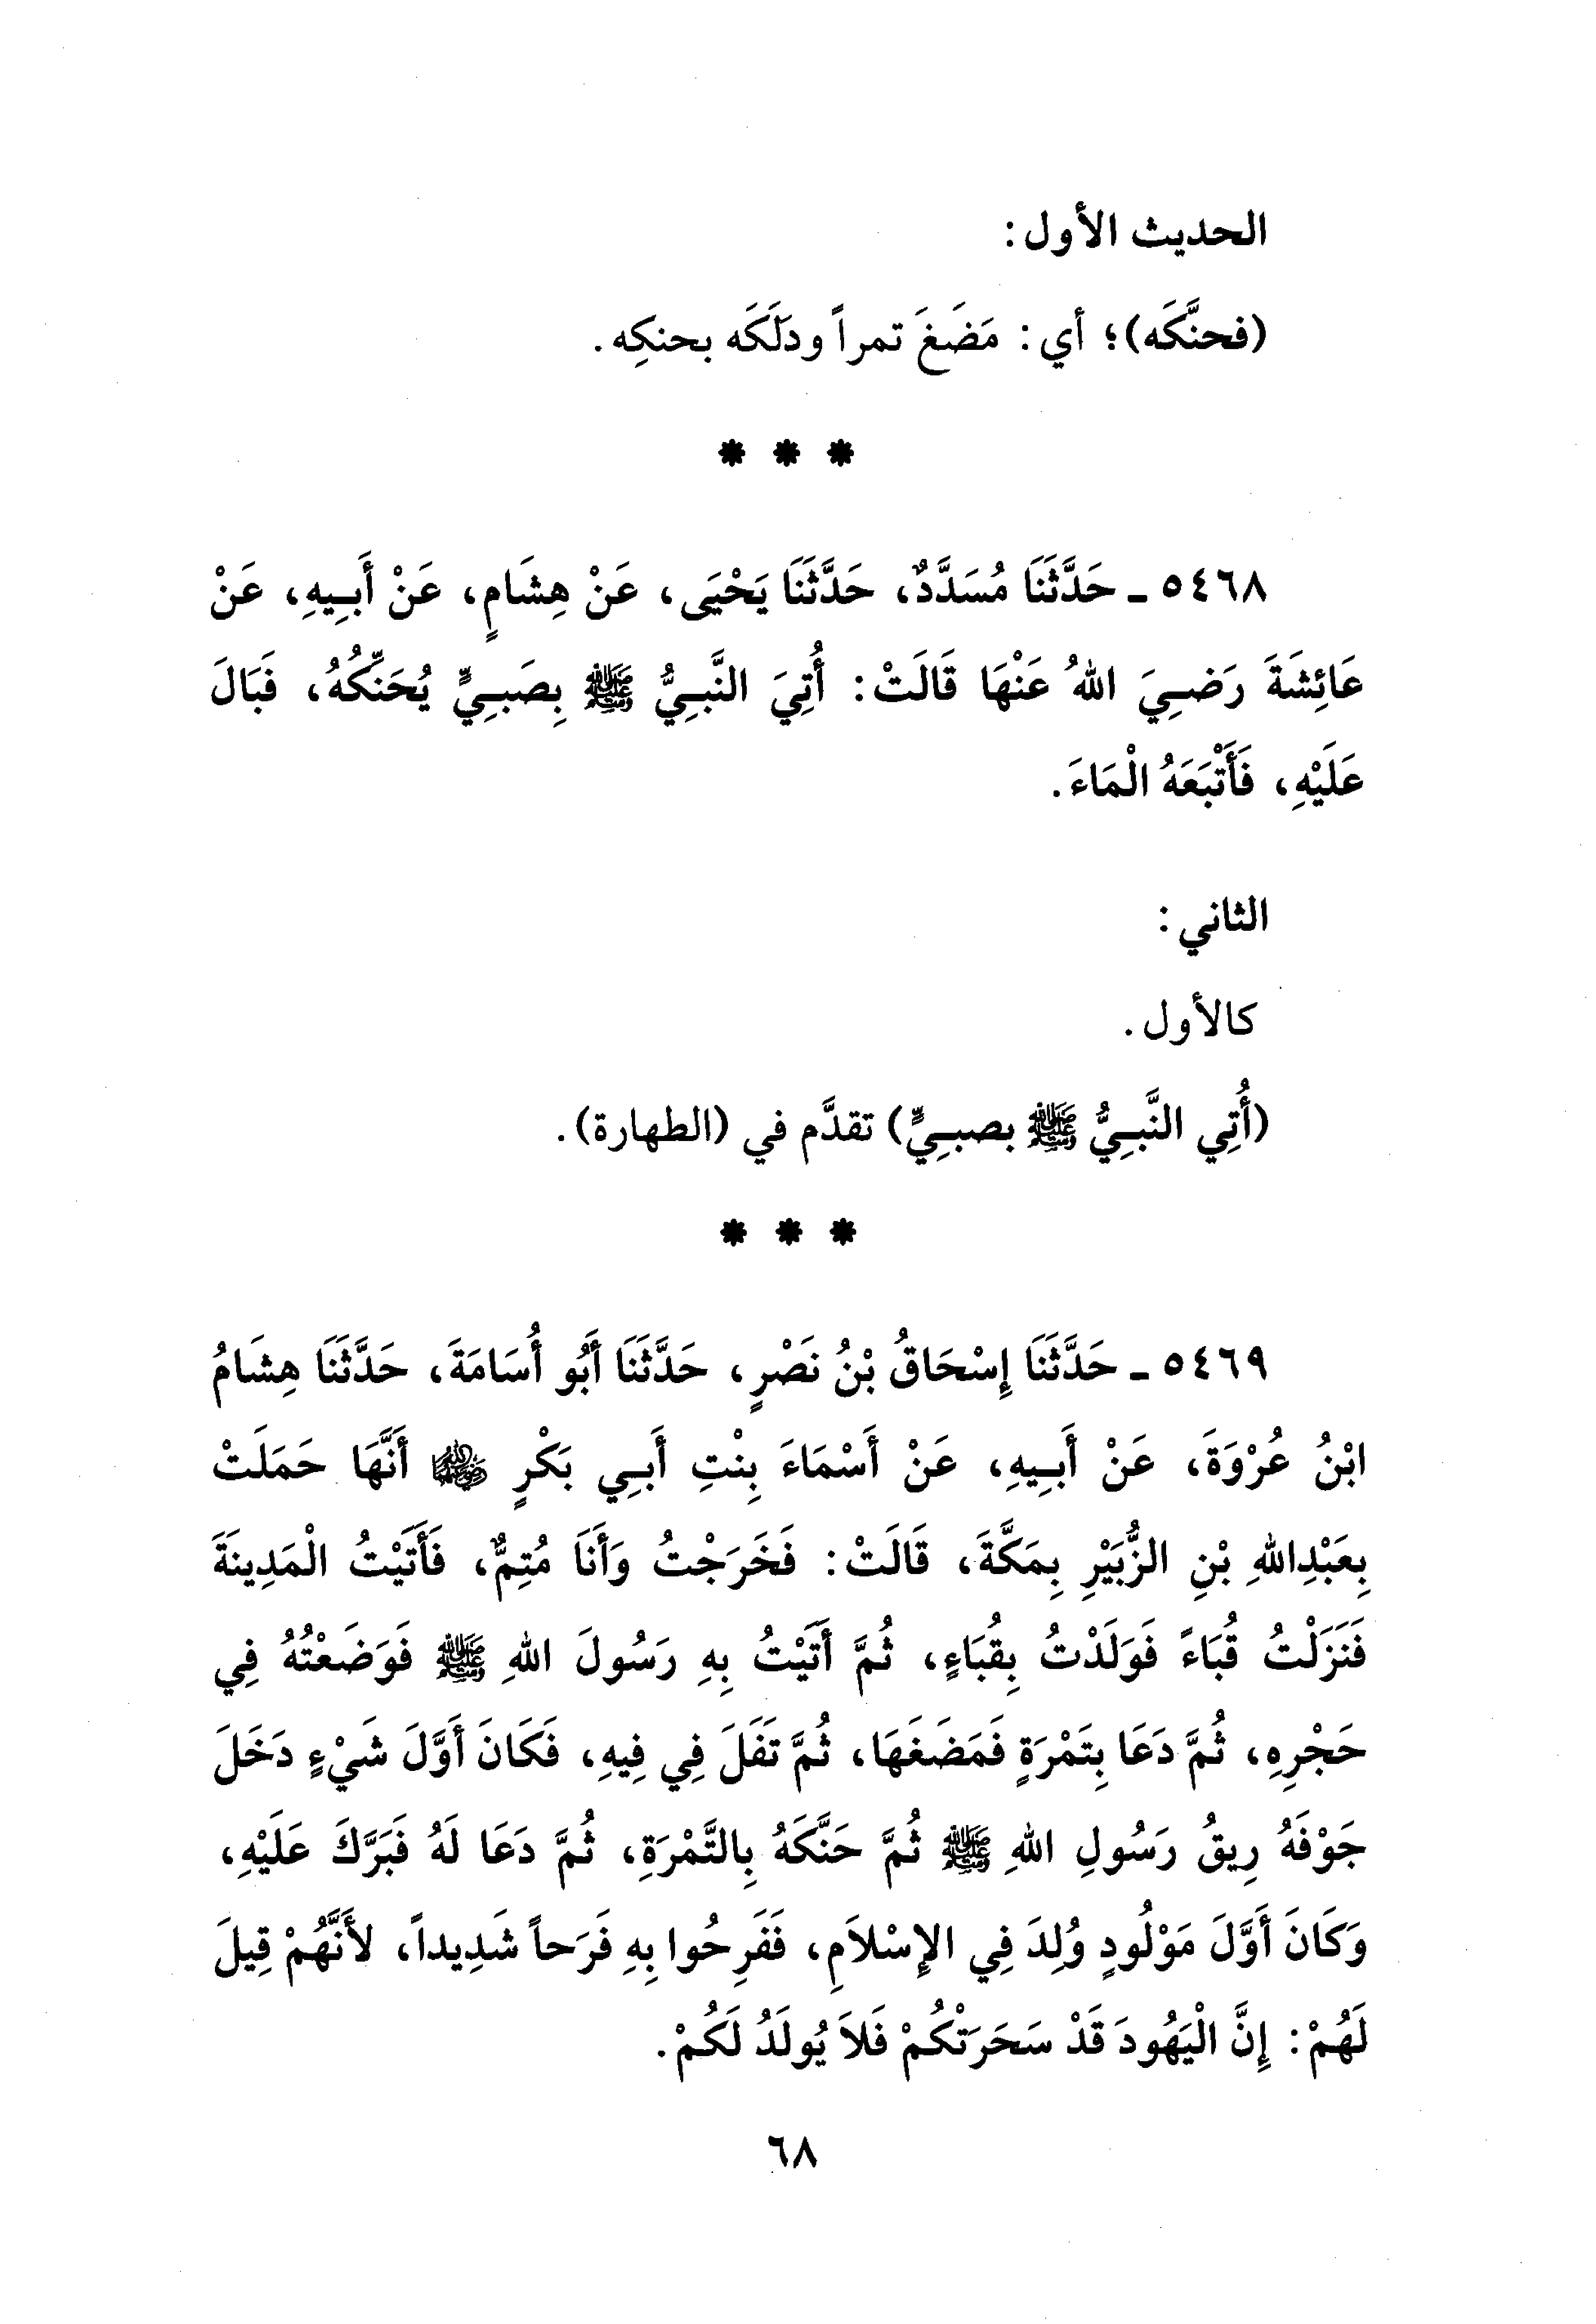 الحديث الأول:
(فحنَّكَه)؛ أي: مَضَغَ تمراً ودلَكَه بحنكِه.
* * *
٥٤٦٨ ـ حَدَّثَنَا مُسَدَّدٌ، حَدَّثَنَا يَحْيَى، عَنْ هِشَامٍ، عَنْ أَبِيهِ، عَنْ
عَائِشَةَ رَضِيَ اللهُ عَنْهَا قَالَتْ: أُتِيَ النَّبِيُّ ﷺ بِصَبِيٍّ يُحَنِّكُهُ، فَبَالَ
عَلَيْهِ، فَأَتْبَعَهُ الْمَاءَ.
الثاني:
كالأول.
(أُتِي النَّبِيُّ ﷺ بصبيٍّ) تقدَّم في (الطهارة).
* * *
٥٤٦٩ ـ حَدَّثَنَا إِسْحَاقُ بْنُ نَصْرٍ، حَدَّثَنَا أَبُو أُسَامَةَ، حَدَّثَنَا هِشَامُ
ابْنُ عُرْوَةَ، عَنْ أَبِيهِ، عَنْ أَسْمَاءَ بِنْتِ أَبِي بَكْرٍ أَنَّهَا حَمَلَتْ
بِعَبْدِاللهِ بْنِ الزُّبَيْرِ بِمَكَّةَ، قَالَتْ: فَخَرَجْتُ وَأَنَا مُتِمٌّ، فَأَتَيْتُ الْمَدِينَةَ
فَنَزَلْتُ قُبَاءً فَوَلَدْتُ بِقُبَاءٍ، ثُمَّ أَتَيْتُ بِهِ رَسُولَ اللهِ ﷺ فَوَضَعْتُهُ فِي
حَجْرِهِ، ثُمَّ دَعَا بِتَمْرَةٍ فَمَضَغَهَا، ثُمَّ تَفَلَ فِي فِيهِ، فَكَانَ أَوَّلَ شَيْءٍ دَخَلَ
جَوْفَهُ رِيقُ رَسُولِ اللهِ ﷺ ثُمَّ حَنَّكَهُ بِالتَّمْرَةِ، ثُمَّ دَعَا لَهُ فَبَرَّكَ عَلَيْهِ،
وَكَانَ أَوَّلَ مَوْلُودٍ وُلِدَ فِي الإِسْلاَمِ، فَفَرِحُوا بِهِ فَرَحاً شَدِيداً، لأَنَّهُمْ قِيلَ
لَهُمْ: إِنَّ الْيَهُودَ قَدْ سَحَرَتْكُمْ فَلاَ يُولَدُ لَكُمْ.
٦٨